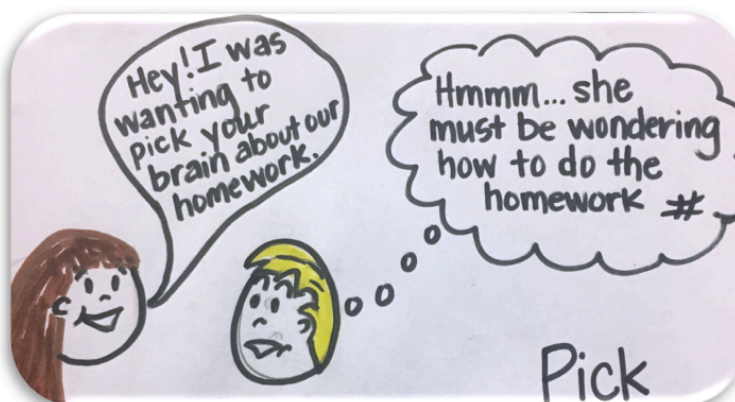 Hey! I was
wanting to
pick your
brain about our
homework.
Hmmm... she
must be wondering
how to do the
homework #
Pick